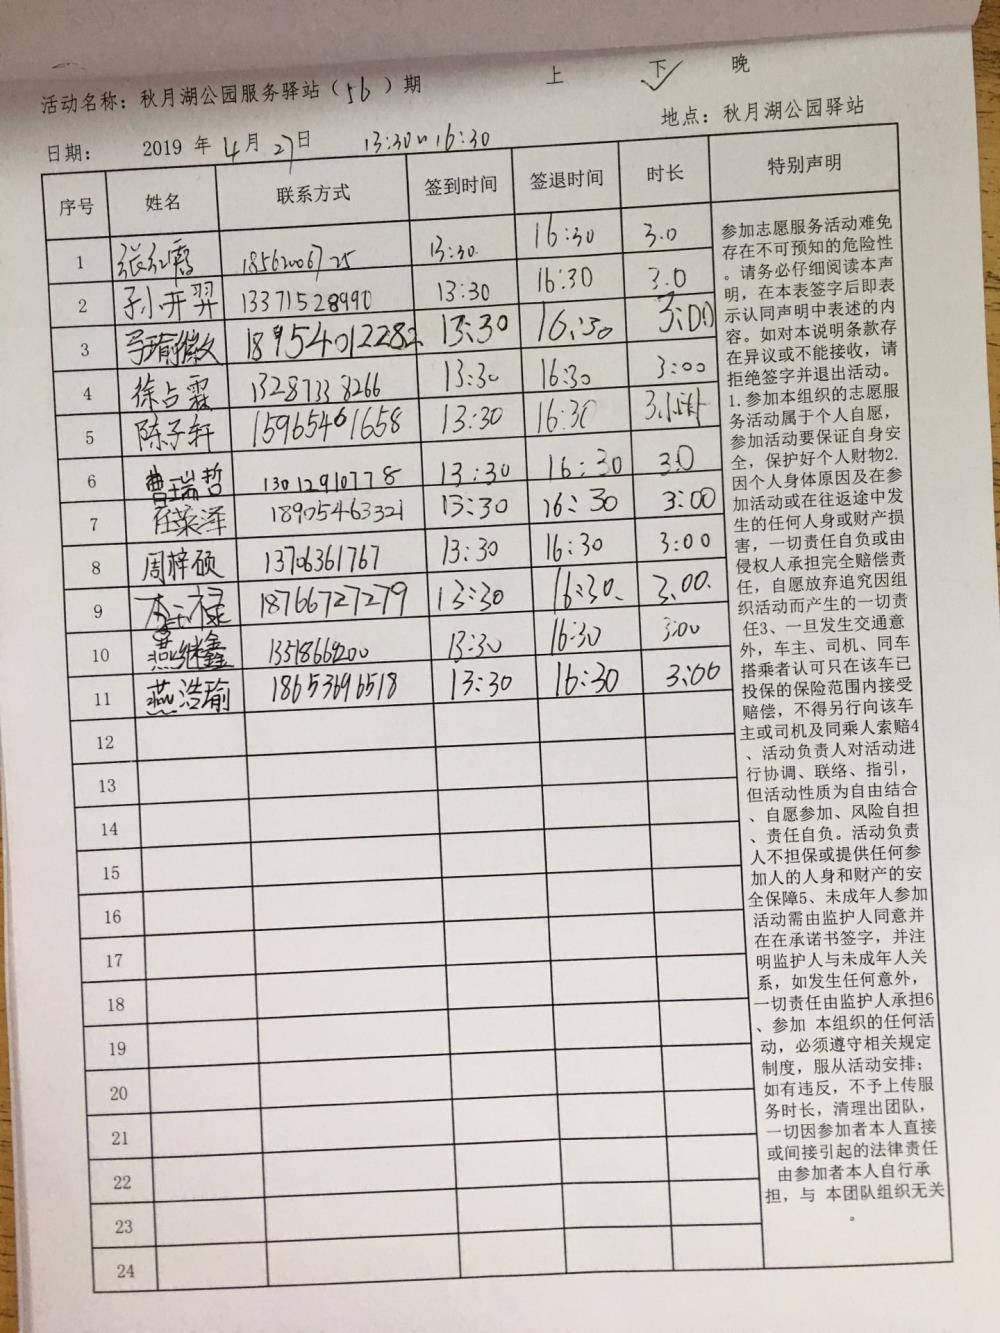 上 下 ✓ 晚
活动名称：秋月湖公园服务驿站（56）期
地点：秋月湖公园驿站
日期： 2019 年 4 月 27 日 13:30~16:30
序号 姓名 联系方式 签到时间 签退时间 时长 特别声明
1 张红霞 13:30. 16:30 3.0
2 13371528990 13:30 16:30 3.0
3 18954012282 13:30 16:30 3:00
4 徐占霖 13287338266 13:30 16:30 3:00
5 陈子轩 15965461658 13:30 16:30 3小时
6 曹瑞哲 13012910778 13:30 16:30 3.0
7 任荣泽 18905463321 13:30 16:30 3:00
8 周梓硕 13706361767 13:30 16:30 3:00
9 18766727279 13:30 16:30. 3.00.
10 燕继鑫 13:30 16:30 3:00
11 燕浩瑜 18653696518 13:30 16:30 3:00
12
13
14
15
16
17
18
19
20
21
22
23
24
参加志愿服务活动难免
存在不可预知的危险性
。请务必仔细阅读本声
明，在本表签字后即表
示认同声明中表述的内
容。如对本说明条款存
在异议或不能接收，请
拒绝签字并退出活动。
1.参加本组织的志愿服
务活动属于个人自愿，
参加活动要保证自身安
全，保护好个人财物2.
因个人身体原因及在参
加活动或在往返途中发
生的任何人身或财产损
害，一切责任自负或由
侵权人承担完全赔偿责
任，自愿放弃追究因组
织活动而产生的一切责
任3、一旦发生交通意
外，车主、司机、同车
搭乘者认可只在该车已
投保的保险范围内接受
赔偿，不得另行向该车
主或司机及同乘人索赔4
、活动负责人对活动进
行协调、联络、指引，
但活动性质为自由结合
、自愿参加、风险自担
、责任自负。活动负责
人不担保或提供任何参
加人的人身和财产的安
全保障5、未成年人参加
活动需由监护人同意并
在在承诺书签字，并注
明监护人与未成年人关
系，如发生任何意外，
一切责任由监护人承担6
、参加 本组织的任何活
动，必须遵守相关规定
制度，服从活动安排；
如有违反，不予上传服
务时长，清理出团队，
一切因参加者本人直接
或间接引起的法律责任
由参加者本人自行承
担，与 本团队组织无关
。